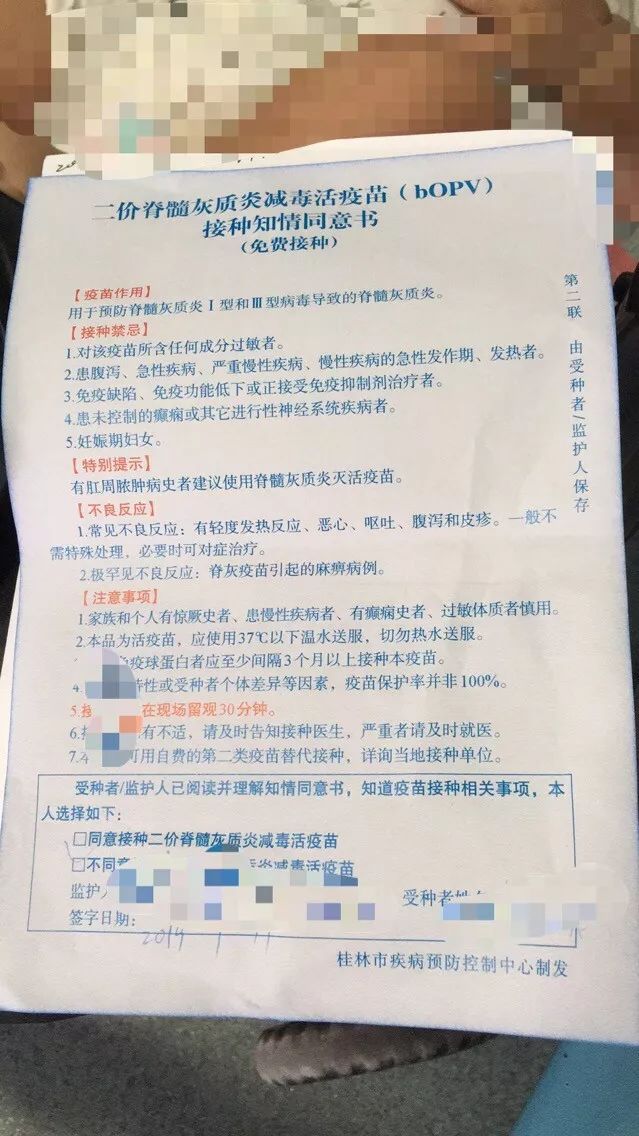 二价脊髓灰质炎减毒活疫苗（bOPV）
接种知情同意书
（免费接种）
【疫苗作用】
用于预防脊髓灰质炎Ⅰ型和Ⅲ型病毒导致的脊髓灰质炎。
【接种禁忌】
1.对该疫苗所含任何成分过敏者。
2.患腹泻、急性疾病、严重慢性疾病、慢性疾病的急性发作期、发热者。
3.免疫缺陷、免疫功能低下或正接受免疫抑制剂治疗者。
4.患未控制的癫痫或其它进行性神经系统疾病者。
5.妊娠期妇女。
【特别提示】
有肛周脓肿病史者建议使用脊髓灰质炎灭活疫苗。
【不良反应】
1.常见不良反应：有轻度发热反应、恶心、呕吐、腹泻和皮疹。一般不
需特殊处理，必要时可对症治疗。
2.极罕见不良反应：脊灰疫苗引起的麻痹病例。
【注意事项】
1.家族和个人有惊厥史者、患慢性疾病者、有癫痫史者、过敏体质者慎用。
2.本品为活疫苗，应使用37℃以下温水送服，切勿热水送服。
疫球蛋白者应至少间隔3个月以上接种本疫苗。
4.特性或受种者个体差异等因素，疫苗保护率并非100%。
5.接在现场留观30分钟。
6.有不适，请及时告知接种医生，严重者请及时就医。
7.本可用自费的第二类疫苗替代接种，详询当地接种单位。
受种者/监护人已阅读并理解知情同意书，知道疫苗接种相关事项，本
人选择如下：
□同意接种二价脊髓灰质炎减毒活疫苗
□不同意炎减毒活疫苗
监护 受种者姓
签字日期：
2019 1 11
桂林市疾病预防控制中心制发
第二联 由受种者/监护人保存